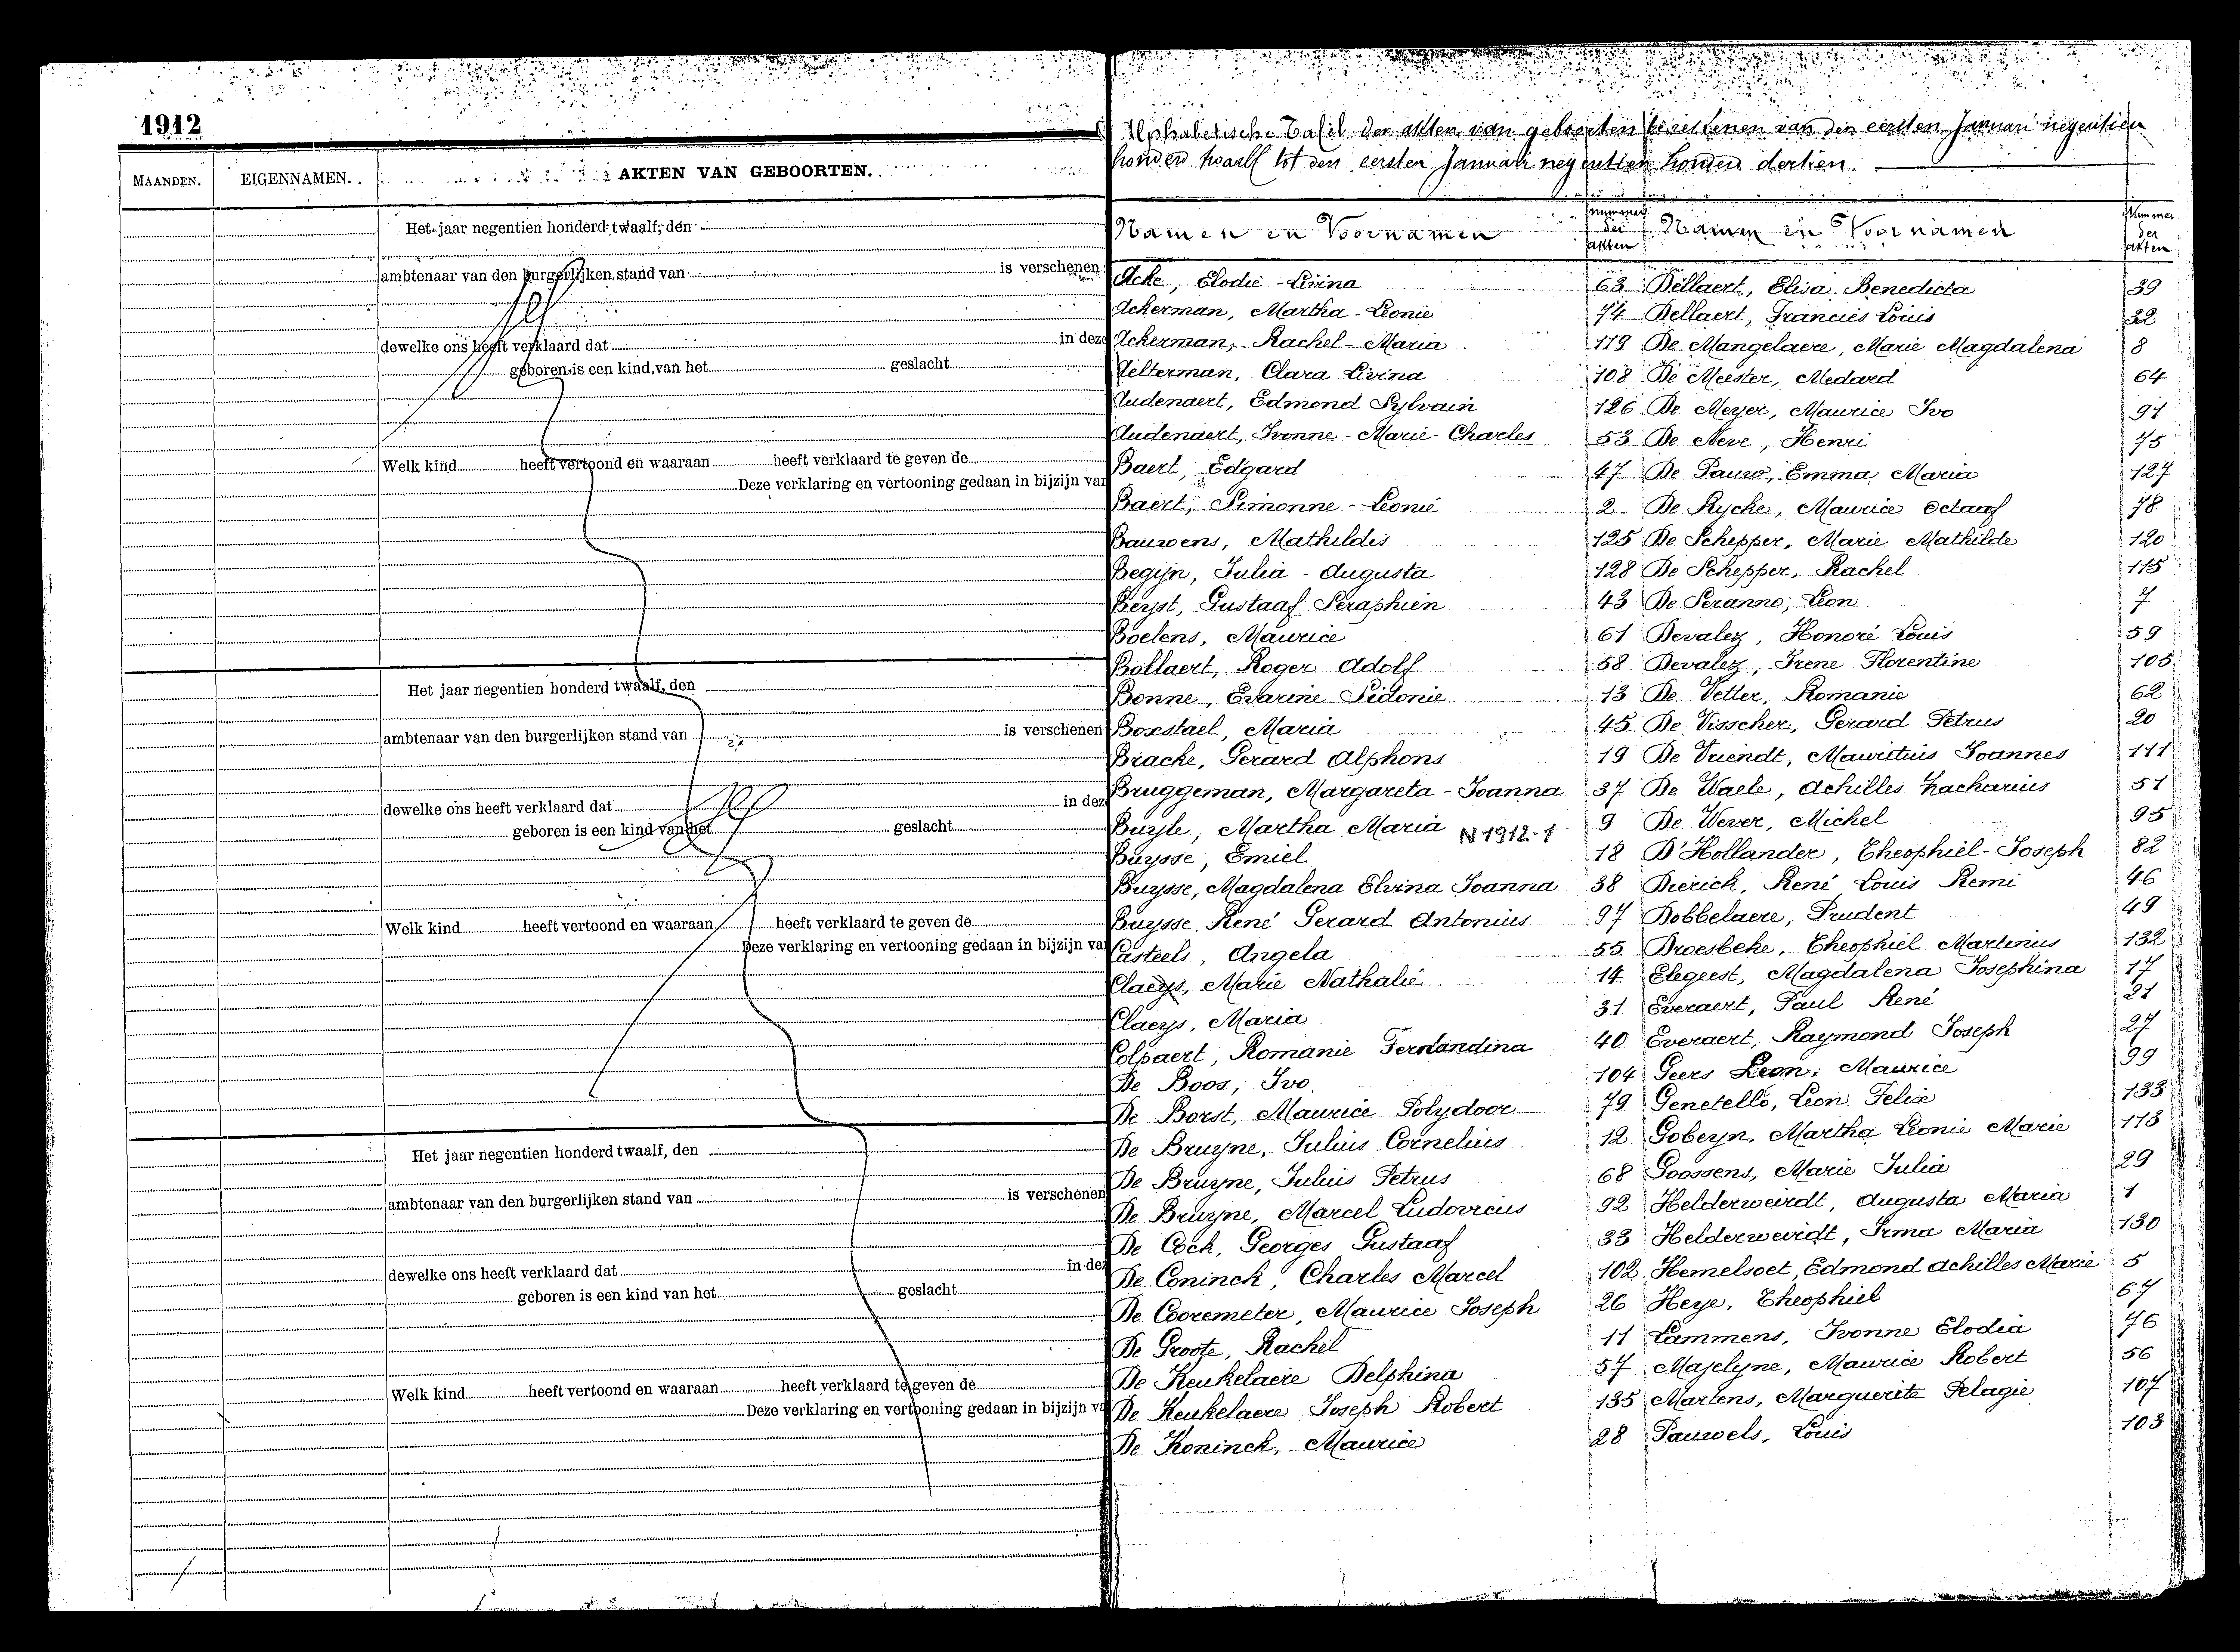 1912
MAANDEN. EIGENNAMEN. AKTEN VAN GEBOORTEN.
Het jaar negentien honderd twaalf, den
ambtenaar van den burgerlijken stand van is verschenen
dewelke ons heeft verklaard dat in deze
geboren is een kind van het geslacht
Welk kind heeft vertoond en waaraan heeft verklaard te geven de
Deze verklaring en vertooning gedaan in bijzijn van
Het jaar negentien honderd twaalf, den
ambtenaar van den burgerlijken stand van is verschenen
dewelke ons heeft verklaard dat in dez
geboren is een kind van het geslacht
Welk kind heeft vertoond en waaraan heeft verklaard te geven de
Deze verklaring en vertooning gedaan in bijzijn va
Het jaar negentien honderd twaalf, den
ambtenaar van den burgerlijken stand van is verschenen
dewelke ons heeft verklaard dat in dez
geboren is een kind van het geslacht
Welk kind heeft vertoond en waaraan heeft verklaard te geven de
Deze verklaring en vertooning gedaan in bijzijn va
Alphabetische Tafel der akten van geboorten van den eersten Januari negentien
honderd twaalf tot den eersten Januari negentien honderd dertien.
Namen en Voornamen Nummer der akten Namen en Voornamen Nummer der akten
Acke, Elodie-Livina 63 Dellaert, Elisa Benedicta 39
Ackerman, Martha-Leonie 74 Dellaert, Francies Louis 32
Ackerman, Rachel-Maria 119 De Mangelaere, Marie Magdalena 8
Aelterman, Clara Livina 108 De Meester, Medard 64
Audenaert, Edmond Sylvain 126 De Meyer, Maurice Ivo 91
Audenaert, Ivonne-Marie-Charles 53 De Neve, Henri 75
Baert, Edgard 47 De Pauw, Emma Maria 127
Baert, Simonne-Leonie 2 De Rycke, Maurice Octaaf 78
Bauwens, Mathildis 125 De Schepper, Marie Mathilde 120
Begijn, Julia-Augusta 128 De Schepper, Rachel 115
Beyst, Gustaaf Seraphien 43 De Seranno, Leon 7
Boelens, Maurice 61 Devaley, Honoré Louis 59
Bollaert, Roger Adolf 58 Devaley, Irene Florentine 105
Bonne, Evarine Sidonie 13 De Vetter, Romanie 62
Boxstael, Maria 45 De Visscher, Gerard Petrus 20
Bracke, Gerard Alphons 19 De Vriendt, Mauritius Joannes 111
Bruggeman, Margareta-Joanna 37 De Waele, Achilles Zacharius 51
Buyle, Martha Maria N 1912-1 9 De Wever, Michel 95
Buysse, Emiel 18 D'Hollander, Theophiel-Joseph 82
Buysse, Magdalena Elvina Joanna 38 Dierick, René Louis Remi 46
Buysse, René Gerard Antonius 97 Dobbelaere, Prudent 49
Casteels, Angela 55 Droesbeke, Theophiel Martinus 132
Claeys, Marie Nathalie 14 Elegeest, Magdalena Josephina 17
Claeys, Maria 31 Everaert, Paul René 21
Colpaert, Romanie Ferdandina 40 Everaert, Raymond Joseph 27
De Boos, Ivo 104 Geers Leon, Maurice 99
De Borst, Maurice Polydoor 79 Genetello, Leon Felix 133
De Bruyne, Julius Cornelius 12 Gobeyn, Martha Leonie Marie 113
De Bruyne, Julius Petrus 68 Goossens, Marie Julia 29
De Bruyne, Marcel Ludovicus 92 Helderweirdt, Augusta Maria 1
De Cock, Georges Gustaaf 33 Helderweirdt, Irma Maria 130
De Coninck, Charles Marcel 102 Hemelsoet, Edmond Achilles Marie 5
De Cooremeter, Maurice Joseph 26 Heye, Theophiel 67
De Groote, Rachel 11 Lammens, Ivonne Elodia 76
De Keukelaere Delphina 57 Majelyne, Maurice Robert 56
De Keukelaere Joseph Robert 135 Martens, Marguerite Pelagie 107
De Koninck, Maurice 28 Pauwels, Louis 103